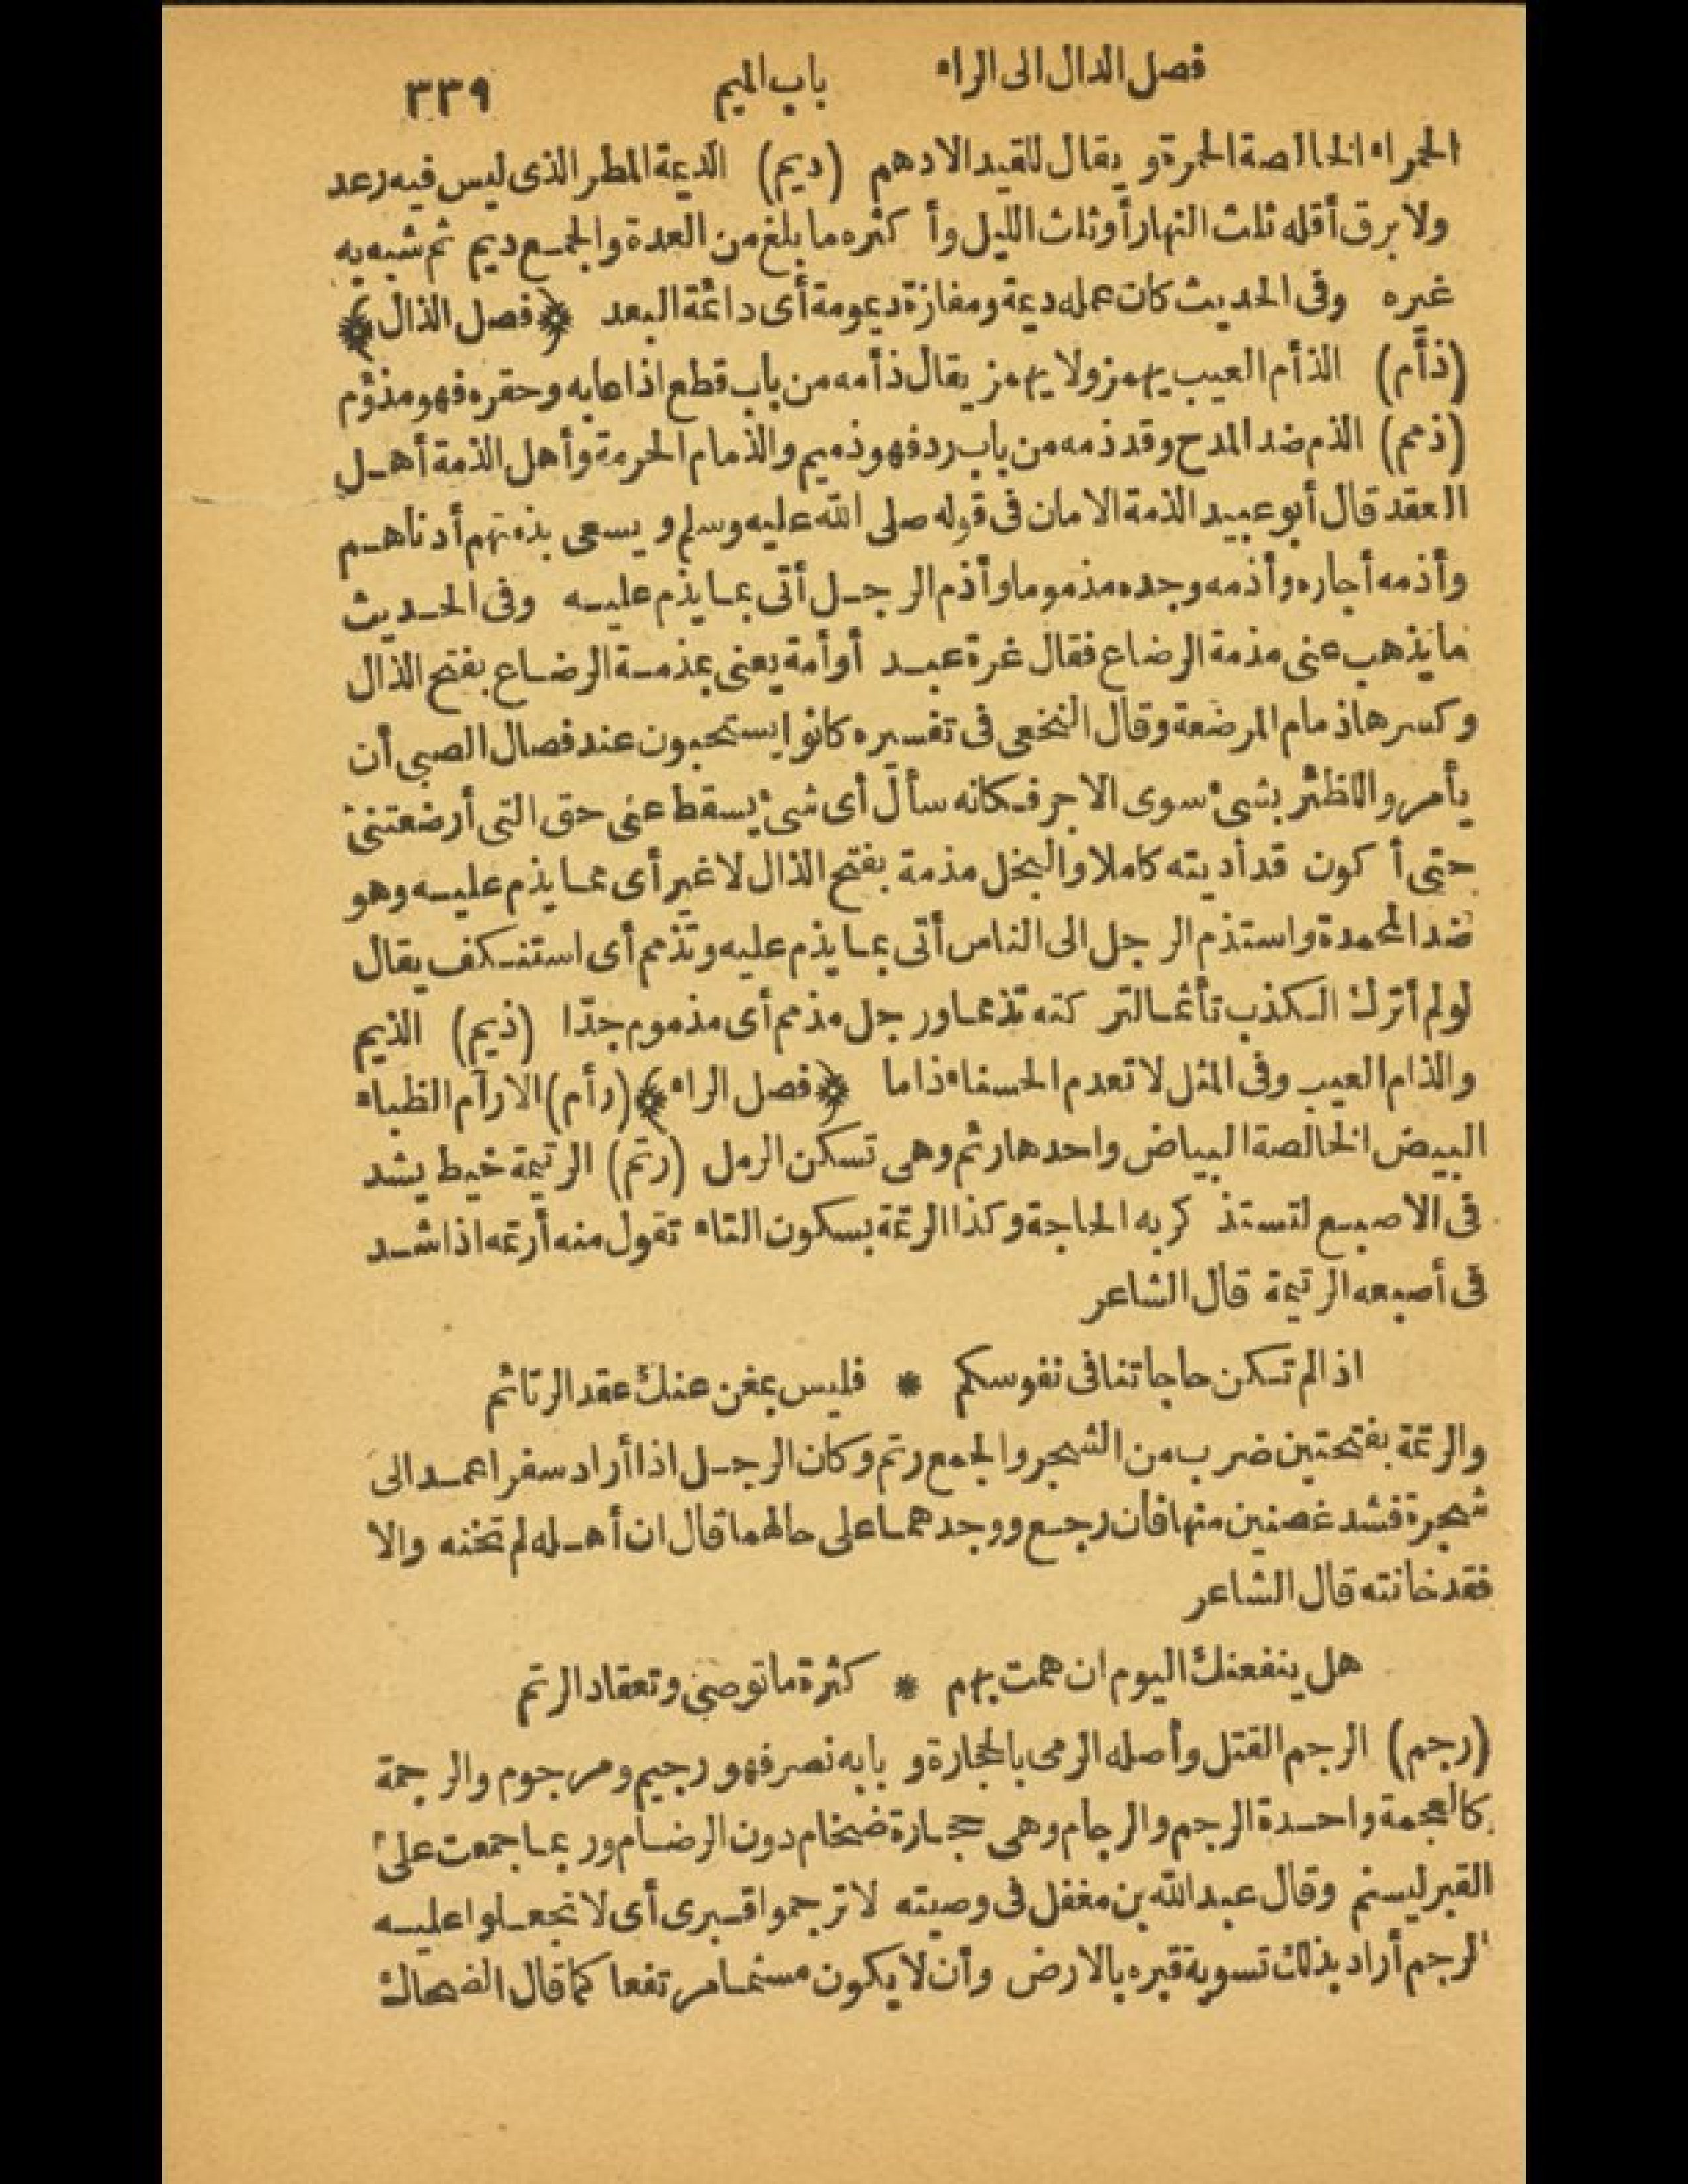 فصل الدال الى الراء باب الميم ٣٣٩
الحمراء الخالصة الحمرة و يقال للقيد الادهم (ديم) الديمة المطر الذى ليس فيه رعد
ولا برق أقله ثلث النهار أو ثلث الليل وأ كثره ما بلغ من العدة والجمع ديم ثم شبه به
غيره وفى الحديث كان عمله ديمة ومفازة ديمومة أى دائمة البعد ﴿فصل الذال﴾
(ذأم) الذأم العيب يهمز ولا يهمز يقال ذأمه من باب قطع اذا عابه وحقره فهو مذؤم
(ذمم) الذم ضد المدح وقد ذمه من باب رد فهو ذميم والذمام الحرمة وأهل الذمة أهل
العقد قال أبو عبيد الذمة الامان فى قوله صلى الله عليه وسلم و يسعى بذمتهم أدناهم
وأذمه أجاره وأذمه وجده مذموما وأذم الرجل أتى بما يذم عليه وفى الحديث
ما يذهب عنى مذمة الرضاع فقال غرة عبد أو أمة يعنى بمذمة الرضاع بفتح الذال
وكسرها ذمام المرضعة وقال النخعى فى تفسيره كانوا يستحبون عند فصال الصبى أن
يأمروا للظئر بشئ سوى الاجر فكانه سأل أى شئ يسقط عنى حق التى أرضعتنى
حتى أ كون قد أديته كاملا والبخل مذمة بفتح الذال لا غير أى مما يذم عليه وهو
ضد المحمدة واستذم الرجل الى الناس أتى بما يذم عليه وتذمم أى استنكف يقال
لو لم أترك الكذب تأثما لتر كته تذمما ورجل مذمم أى مذموم جدّا (ذيم) الذيم
والذام العيب وفى المثل لا تعدم الحسناء ذاما ﴿فصل الراء﴾ (رأم) الارآم الظباء
البيض الخالصة البياض واحدها رئم وهى تسكن الرمل (رتم) الرتيمة خيط يشد
فى الاصبع لتستذ كر به الحاجة وكذا الرتمة بسكون التاء تقول منه أرتمه اذا شد
فى أصبعه الرتيمة قال الشاعر
اذا لم تكن حاجاتنا فى نفوسكم * فليس بمغن عنك عقد الرتائم
والرتمة بفتحتين ضرب من الشجر والجمع رتم وكان الرجل اذا أراد سفرا عمد الى
شجرة فشد غصنين منها فان رجع ووجدهما على حالهما قال ان أهله لم تخنه والا
فقد خانته قال الشاعر
هل ينفعنك اليوم ان همت بهم * كثرة ما توصى وتعقاد الرتم
(رجم) الرجم القتل وأصله الرمى بالحجارة و بابه نصر فهو رجيم ومرجوم والرجمة
كالعجمة واحدة الرجم والرجام وهى حجارة ضخام دون الرضام وربما جمعت على
القبر ليسنم وقال عبد الله بن مغفل فى وصيته لا ترجموا قبرى أى لا تجعلوا عليه
الرجم أراد بذلك تسوية قبره بالارض وأن لا يكون مسنما مرتفعا كما قال الضحاك